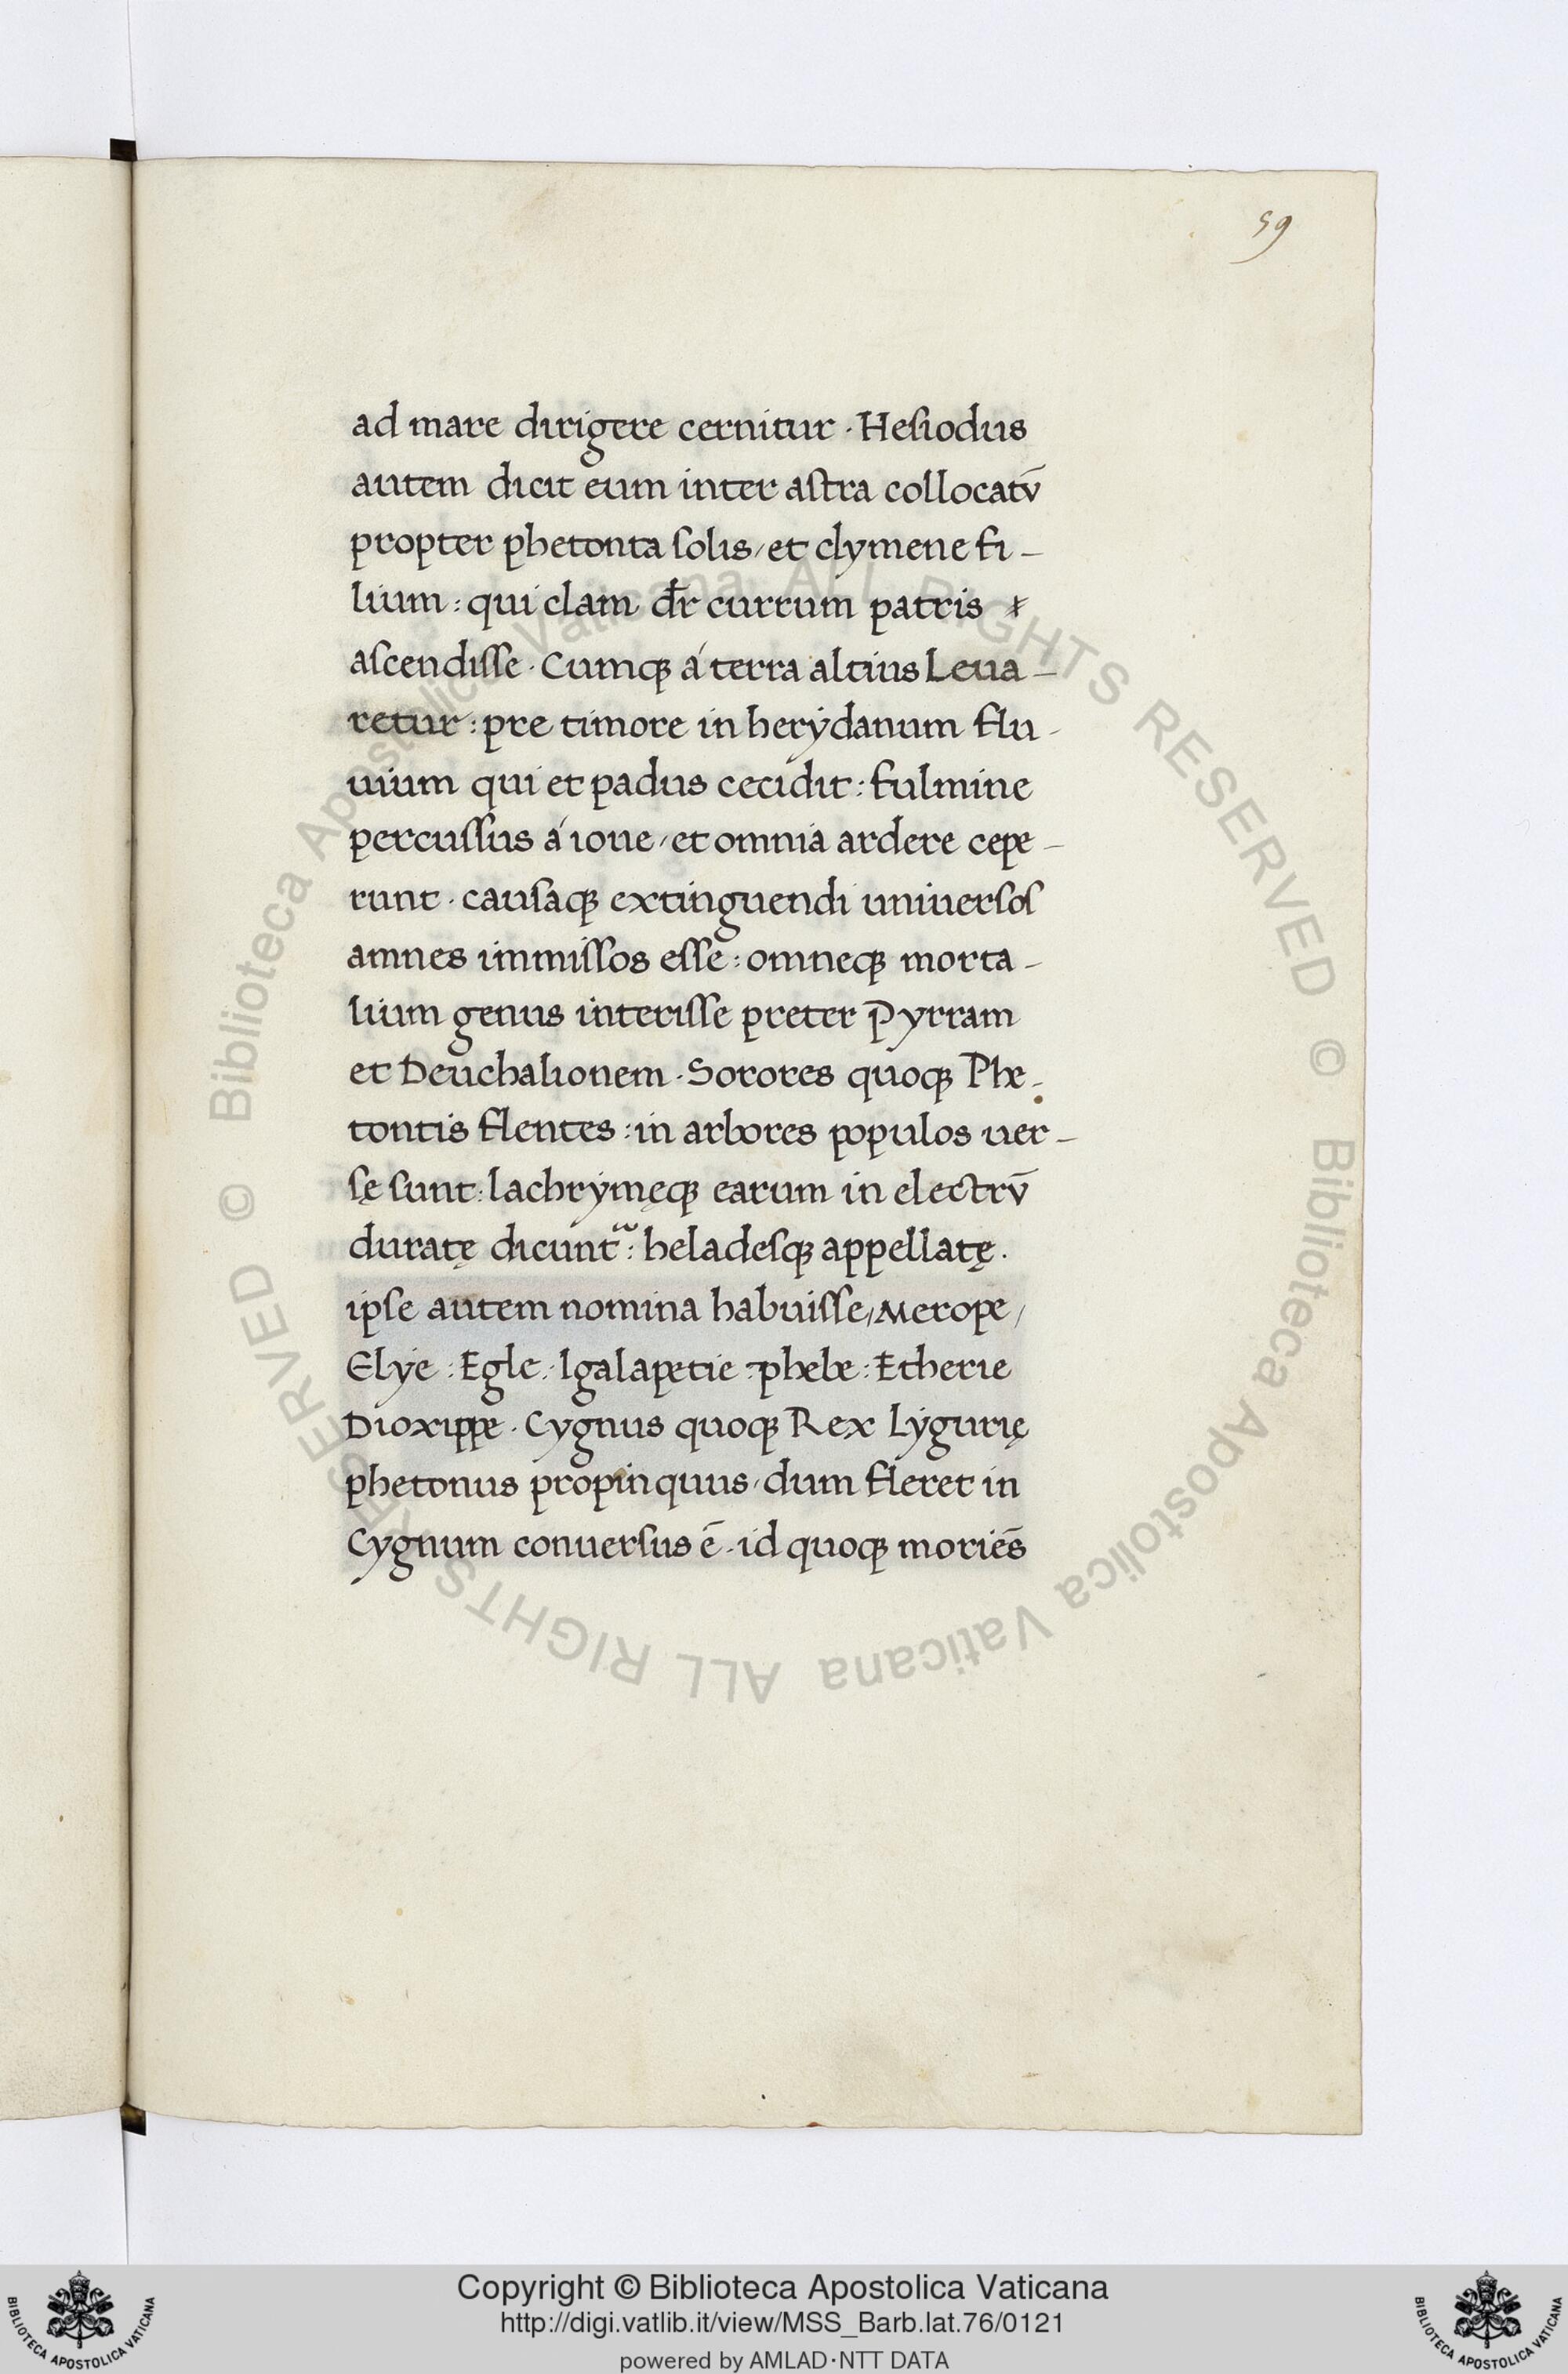 59
ad mare dirigere cernitur · Hesiodus
autem dicit eum inter astra collocatū
propter phetonta solis / et clymene fi-
lium : qui clam dr̄ currum patris
ascendisse · Cumqꝫ á terra altius Leua-
retur : pre timore in herẏdanum flu-
uium qui et padus cecidit : fulmine
percussus á ioue / et omnia ardere cepe-
runt · causaqꝫ extinguendi uniuersos
amnes immissos esse : omneqꝫ morta-
lium genus interisse preter Pyrram
et Deuchalionem · Sorores quoqꝫ Phe-
tontis flentes : in arbores populos uer-
sę sunt : lachrẏmęqꝫ earum in electrū
duratę dicunt᷑ : heladesqꝫ appellatę .
ipse autem nomina habuisse / Merope /
Elẏe : Egle : Igalapetie : phebe : Etherie
Dioxippe · Cygnus quoqꝫ Rex Lẏgurię
phetonus propinquus / dum fleret in
Cygnum conuersus ē · id quoqꝫ moriēs
© Biblioteca Apostolica Vaticana ALL RIGHTS RESERVED © Biblioteca Apostolica Vaticana ALL RIGHTS RESERVED
Copyright © Biblioteca Apostolica Vaticana
http://digi.vatlib.it/view/MSS_Barb.lat.76/0121
powered by AMLAD·NTT DATA
BIBLIOTECA APOSTOLICA VATICANA
BIBLIOTECA APOSTOLICA VATICANA